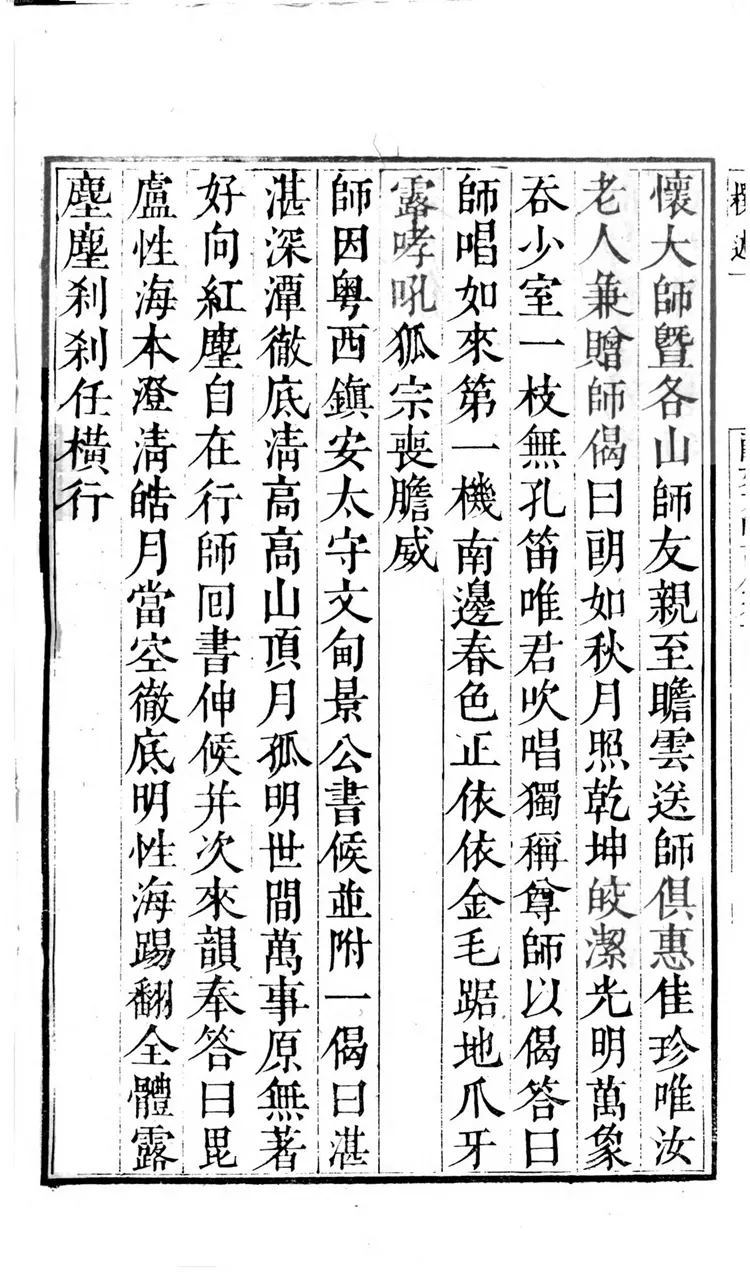 懷大師暨各山師友親至瞻雲送師俱惠佳珍唯汝
老人兼贈師偈曰朗如秋月照乾坤皎潔光明萬象
吞少室一枝無孔笛唯君吹唱獨稱尊師以偈答曰
師唱如來第一機南邊春色正依依金毛踞地爪牙
露哮吼狐宗喪膽威
師因粤西鎮安太守文甸景公書候並附一偈曰湛
湛深潭徹底清高高山頂月孤明世間萬事原無著
好向紅塵自在行師回書伸候并次來韻奉答曰毘
盧性海本澄清皓月當空徹底明性海踢翻全體露
塵塵刹刹任橫行